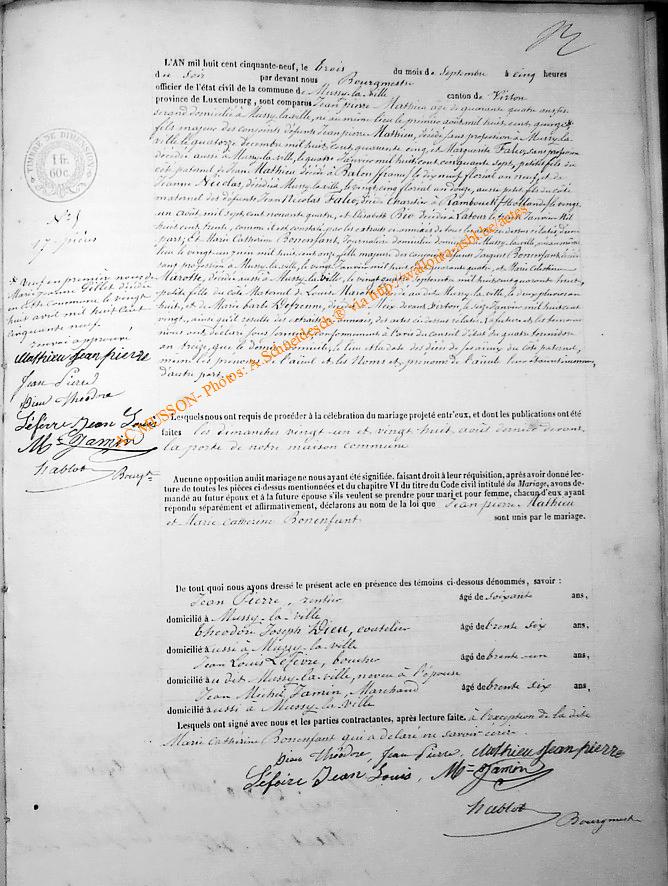 L'AN mil huit cent cinquante-neuf, le trois du mois de Septembre à cinq heures
du soir par devant nous Bourgmestre
officier de l'état civil de la commune de Mussy-la-ville canton de Virton
province de Luxembourg, sont comparus Jean pierre Mathieu âgé de quarante quatre ans
domicilié à Mussy-la-ville, né au même lieu le premier août mil huit cent quinze
fils majeur des conjoints défunts Jean pierre Mathieu, décédé sans profession à Mussy-la-
ville le quatorze Décembre mil huit cent quarante cinq, et Marguerite
décédée aussi à Mussy-la-ville, le quatre Janvier mil huit cent quarante sept, petit fils du
côté paternel de Jean Mathieu décédé à le dix neuf floréal an neuf, et de
Jeanne Nicolas, décédée à Mussy-la-ville, le vingt cinq floréal an douze, aussi petit fils du côté
maternel des défunts Jean Nicolas décédé le vingt
un août mil sept cent nonante quatre, et Elisabeth décédée à Latour le Janvier mil
huit cent trente, comme il est constaté par les extraits
part; Et Marie Catherine Bonenfant, Journalière domiciliée à Mussy-la-ville, née au même
lieu le vingt un juin mil huit cent onze, fille majeure des conjoints Jacques Bonenfant décédé
sans profession à Mussy-la-ville, le vingt Janvier mil huit cent quarante quatre, et Marie Célestine
Marotte, décédée aussi à Mussy-la-ville, le vingt Septembre mil huit cent quarante
petite fille du côté Paternel de Louis au dit Mussy-la-ville, le deux pluviôse an
huit, et de Marie barbe Virton, le Seize Janvier mil huit cent
vingt, ainsi qu'il résulte des extraits
nous ont déclaré sous serment conformément à l'avis du conseil d'état du quatre thermidor
an treize, que le dernier domicile, le lieu et la date des décès de du côté paternel,
même les prénoms de l'aïeul et les Noms et prénoms de l'aïeule leur étaient inconnus,
d'autre part.
Lesquels nous ont requis de procéder à la célébration du mariage projeté entr'eux, et dont les publications ont été
faites les dimanches vingt-un et vingt huit août dernier devant
la porte de notre maison commune
Aucune opposition audit mariage ne nous ayant été signifiée, faisant droit à leur réquisition, après avoir donné lec-
ture de toutes les pièces ci-dessus mentionnées et du chapitre VI du titre du Code civil intitulé du Mariage, avons de-
mandé au futur époux et à la future épouse s'ils veulent se prendre pour mari et pour femme, chacun d'eux ayant
répondu séparément et affirmativement, déclarons au nom de la loi que Jean pierre Mathieu
et Marie Catherine Bonenfant sont unis par le mariage.
De tout quoi nous avons dressé le présent acte en présence des témoins ci-dessous dénommés, savoir :
Jean Pierre, rentier âgé de soixante ans,
domicilié à Mussy-la-ville
Théodore Joseph Dieu, coutelier âgé de trente six ans,
domicilié aussi à Mussy-la-ville
Jean Louis Lefèvre, boucher âgé de trente-un ans,
domicilié au dit Mussy-la-ville, neveu à l'épouse
Jean Michel Jamin, Marchand âgé de trente six ans,
domicilié aussi à Mussy-la-ville
Lesquels ont signé avec nous et les parties contractantes, après lecture faite. à l'exception de la dite
Marie Catherine Bonenfant qui a déclaré ne savoir écrire
Dieu Théodore, Jean Pierre, Mathieu Jean pierre
Lefèvre Jean Louis, Mel Jamin
hablot
Bourgmest
TIMBRE DE DIMENSION
1 fr.
60 c.
N° 5
17 pièces
Veuf en premières noces de
Marie Gillet décédée
en cette commune le vingt
huit avril mil huit cent
cinquante neuf.
renvoi approuvé
Mathieu Jean pierre
Jean Pierre
Dieu Théodore
Lefèvre Jean Louis
Mel Jamin
hablot
Bourgtre
AC MUSSON- Photos: A.Schneidesch.® via http://wallonia-asbl.be/actes